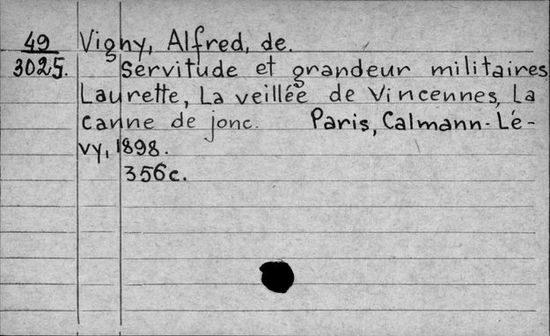 49 Vigny, Alfred, de.
3025. Servitude et grandeur militaires
Laurette, La veillée de Vincennes, La
canne de jonc. Paris, Calmann-Lé-
vy, 1898.
356c.